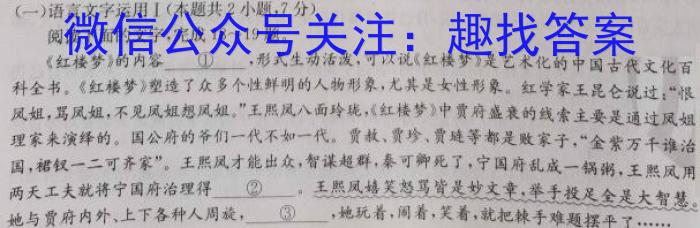 (一)语言文字运用Ⅰ(本题共2小题,7分)
阅读下面的文字,完成18~19题。
微信公众号关注：趣找答案
《红楼梦》的内容 ① ,形式生动活泼,可以说《红楼梦》是艺术化的中国古代文化百
科全书。《红楼梦》塑造了众多个性鲜明的人物形象,尤其是女性形象。红学家王昆仑说过:“恨
凤姐,骂凤姐,不见凤姐想凤姐。”王熙凤八面玲珑,《红楼梦》中贾府盛衰的线索主要是通过凤姐
理家来演绎的。国公府的爷们一代不如一代。贾赦、贾珍、贾琏等都是败家子,“金紫万千谁治
国,裙钗一二可齐家”。王熙凤才能出众,智谋超群,秦可卿死了,宁国府乱成一锅粥,王熙凤用
两天工夫就将宁国府治理得 ② 。王熙凤嬉笑怒骂皆是妙文章,举手投足全是大智慧。
她与贾府内外、上下各种人周旋, ③ ,她玩着,闹着,笑着,就把棘手难题摆平了……